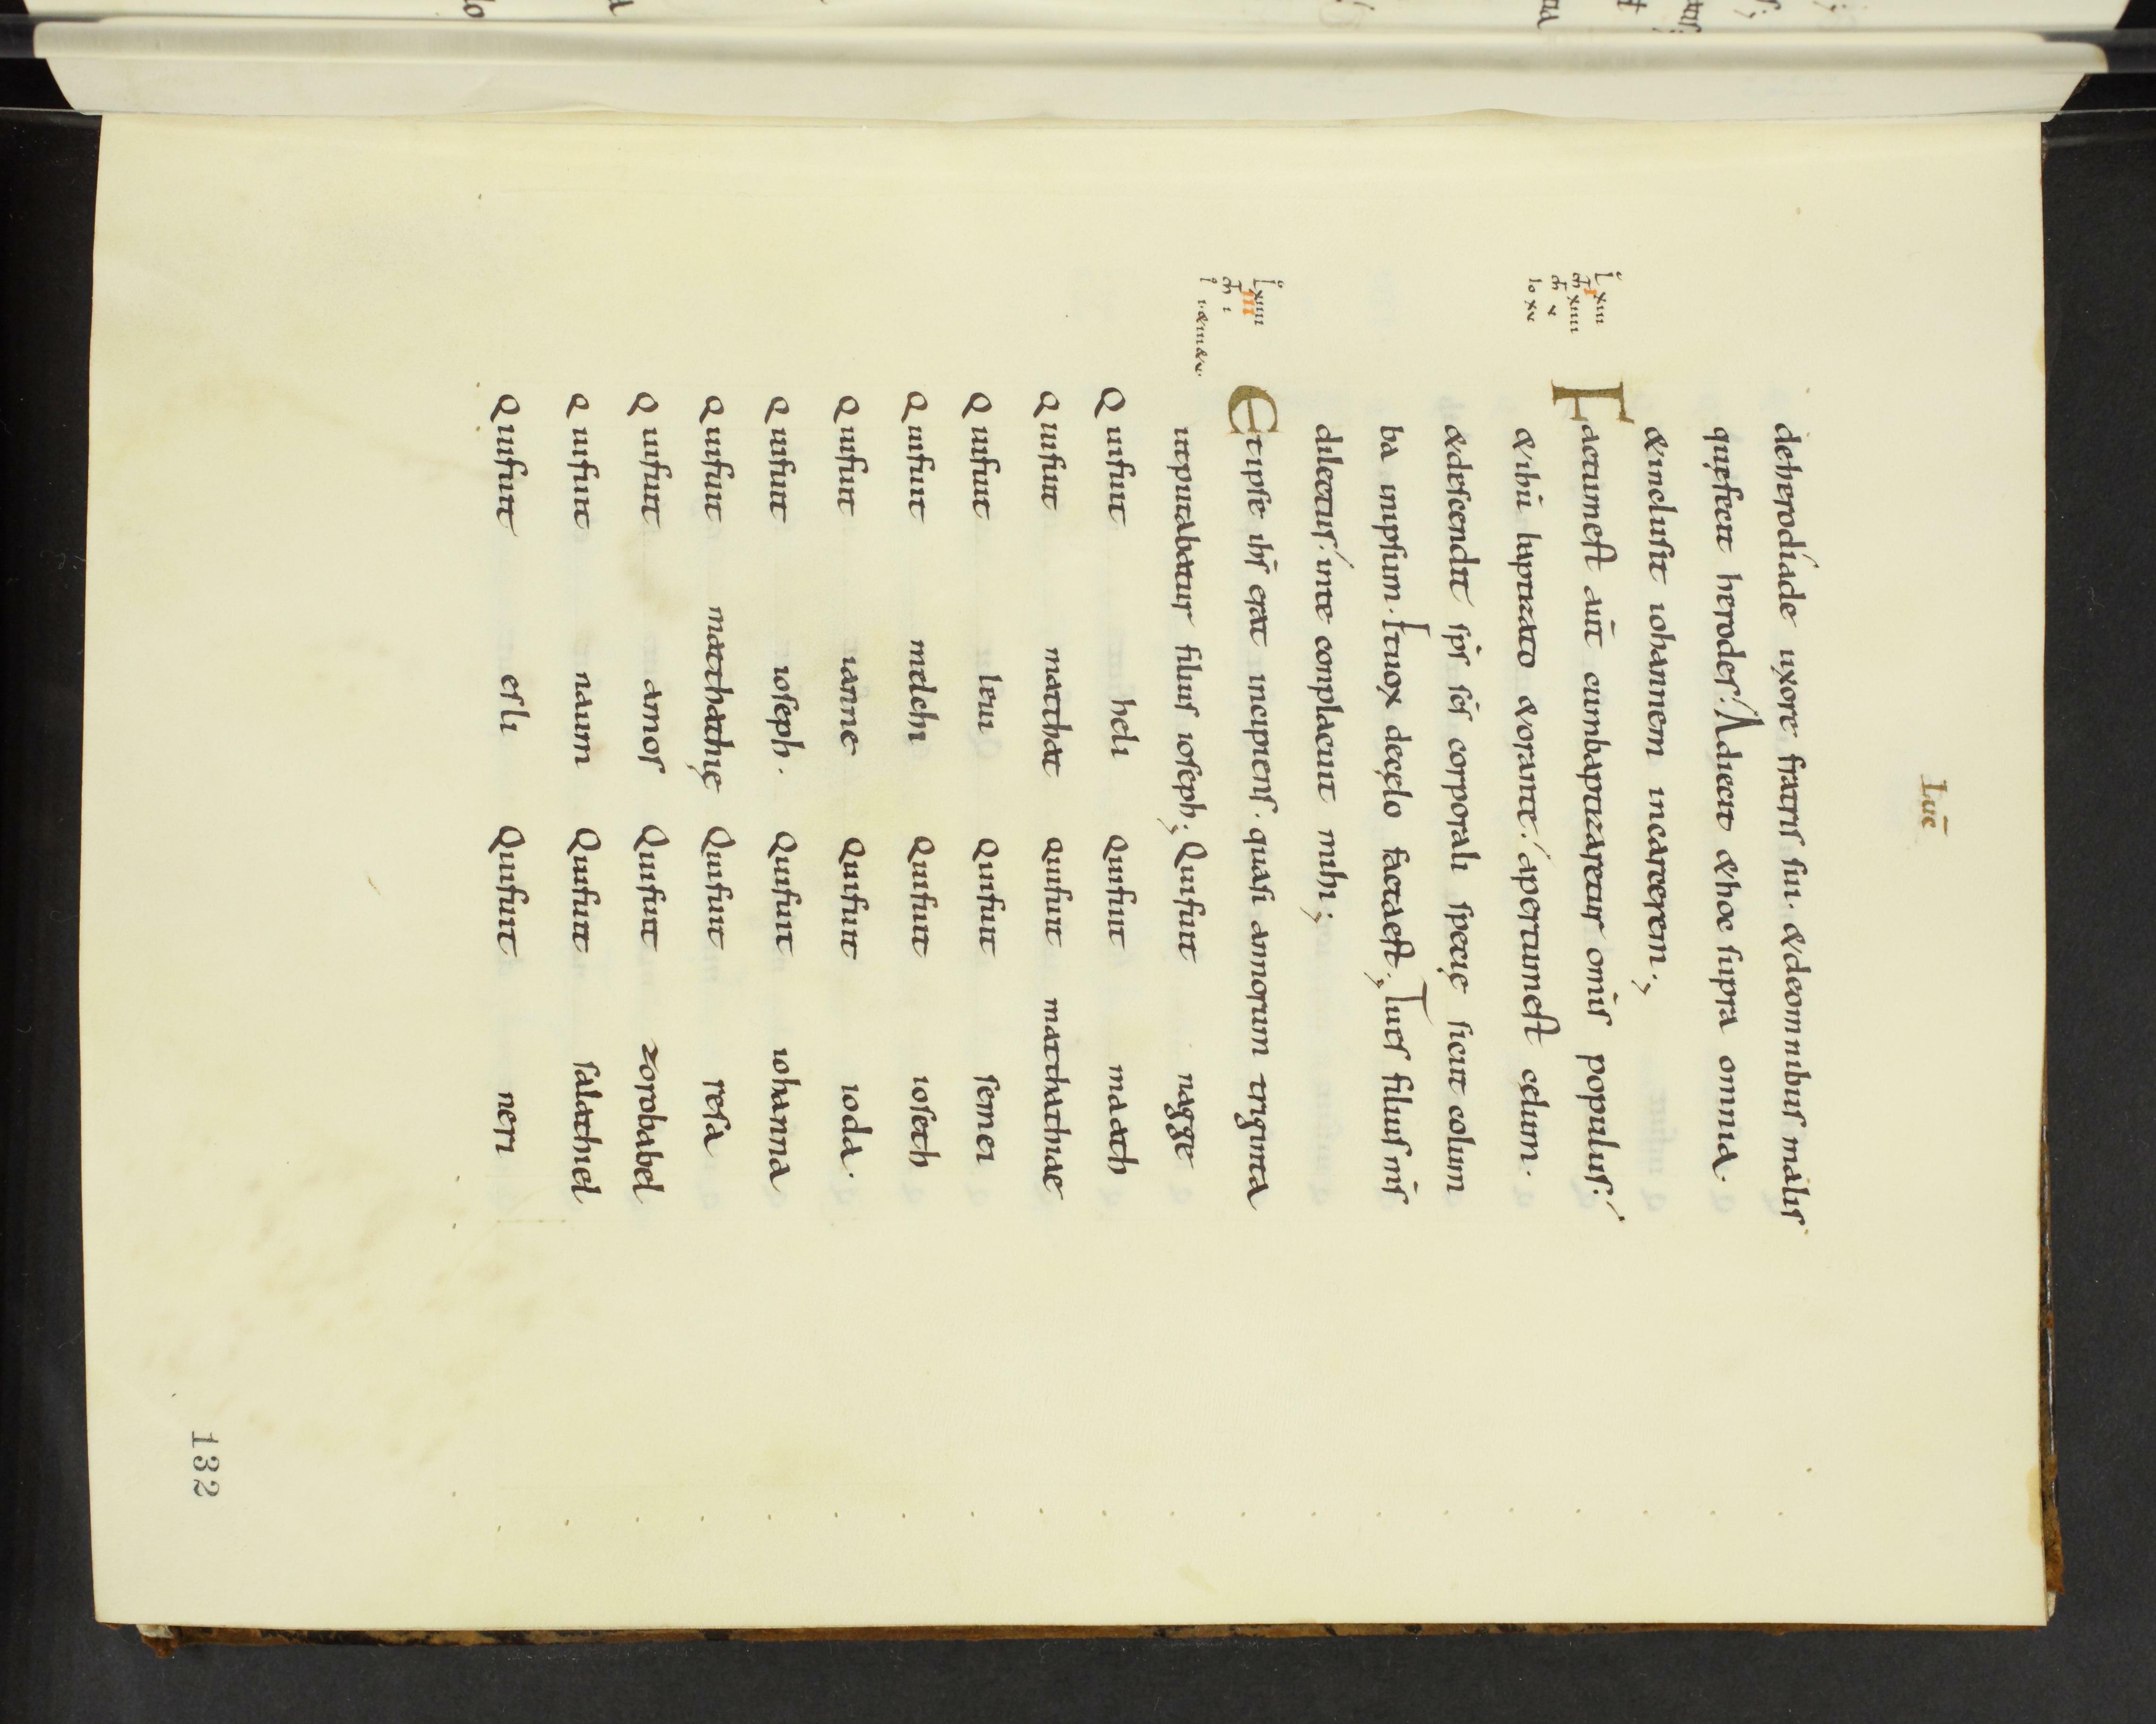 Luc̄
deherodíade uxore fratris sui. &deomnibus malis
quęfecit herodes. Adiecit &hoc supra omnia.
&inclusit iohannem incarcerem.,
Factumest aūt cumbaptizaretur omīs populus.
&ihū baptizato &orante. apertumest cęlum.
&descendit sp̄s sc̄s corporali specię sicut colum
ba inipsum. Etuox decęlo factaest., Tues filius m̄s
dilectus. inte conplacuit mihi.,
Etipse ihs̄ erat incipiens. quasi annorum triginta
utputabatur filius ioseph., Quifuit nagge
Quifuit heli Quifuit maath
Quifuit matthat quifuit matthathiae
Quifuit leui Quifuit semei
Quifuit melchi Quifuit ioseth
Quifuit ianne Quifuit ioda.
Quifuit ioseph. Quifuit iohanna
Quifuit matthathię Quifuit resa
Quifuit amos Quifuit zorobabel
Quifuit naum Quifuit salathiel
Quifuit esli Quifuit neri
132